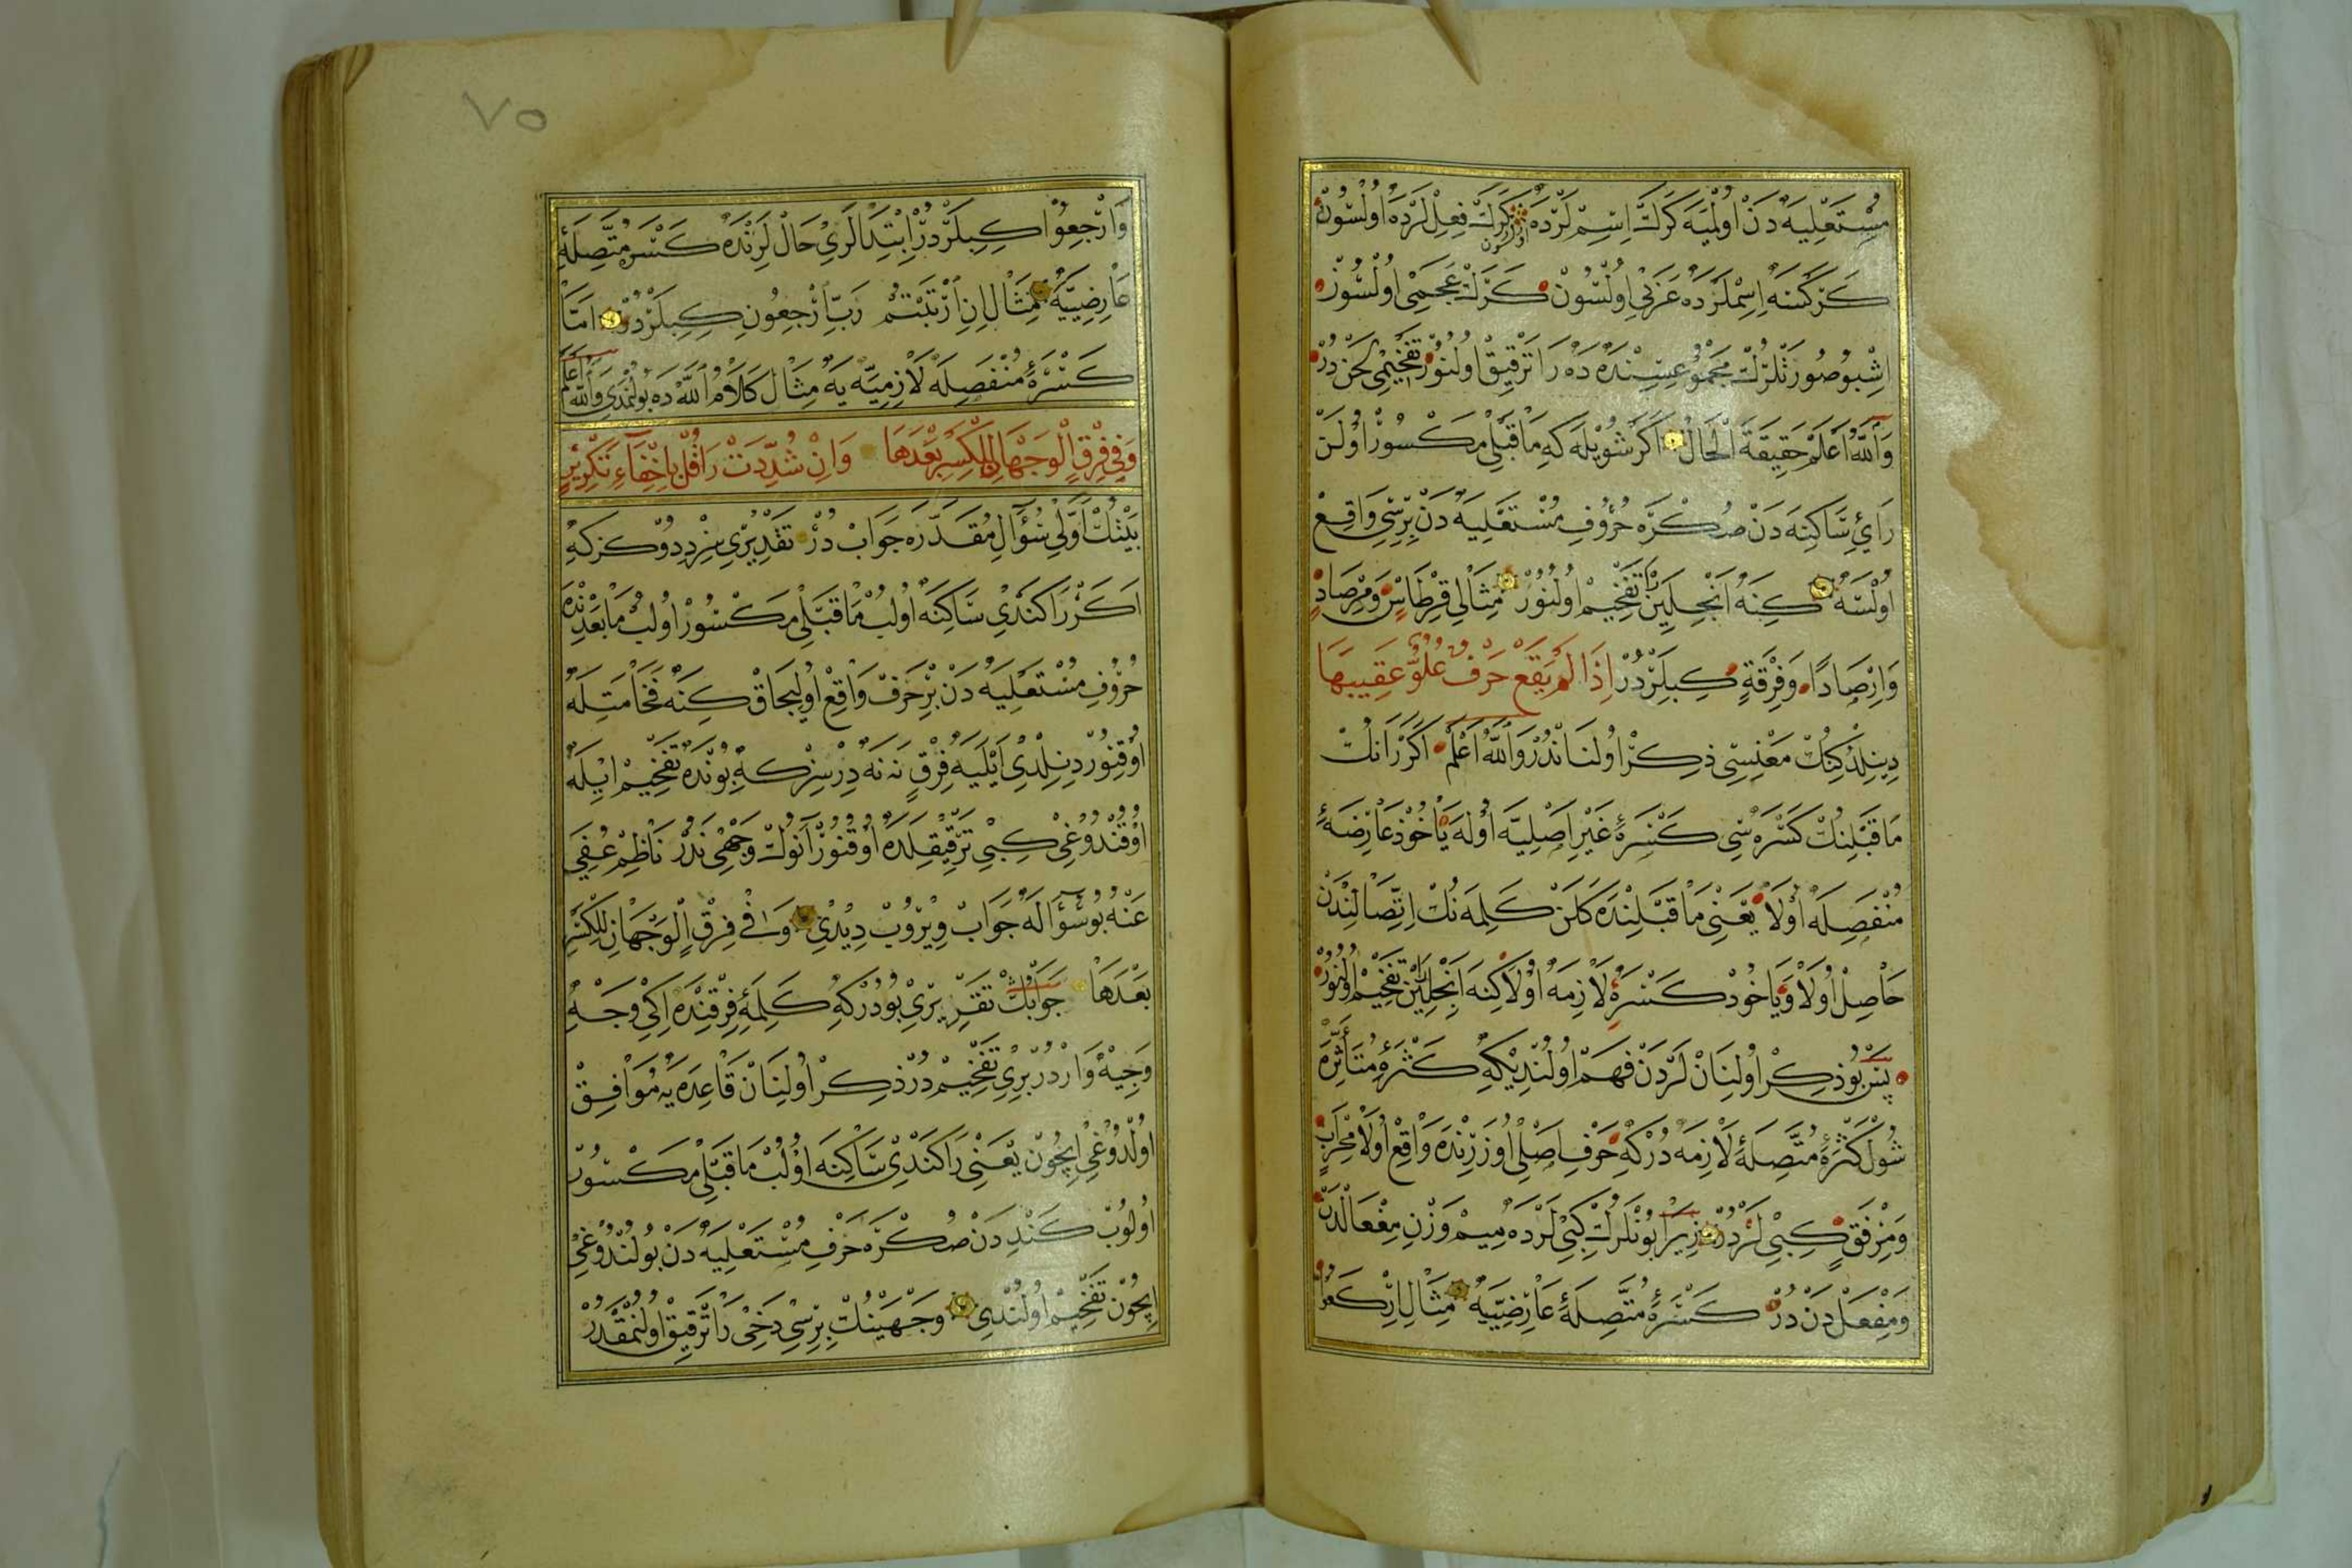 مُسْتَعْلِيَه دَنْ اُولْمَيَه كَرَكْ اِسِمْ لَرْدَه اُولْسُونْ كَرَكْ فِعِلْ لَرْدَه اُولْسُونْ
كَرَكْسَه اِسِمْلَرْدَه عَرَبِى اُولْسُونْ كَرَكْ عَجَمِى اُولْسُونْ
اِشْبُو صُورَتْلَرُكْ مَجْمُوعِسِنْدَه دَه رَا تَرْقِيقْ اُولُنُورْ تَفْخِيمِى لَحَنْ دُرْ
وَاللّٰهُ اَعْلَمُ حَقِيقَةَ الْحَالْ اَكَرْ شُويْلَه كِه مَا قَبْلِى مَكْسُورْ اُولَنْ
رَاىِٔ سَاكِنَه دَنْ صُكْرَه حُرُوفِ مُسْتَعْلِيَه دَنْ بِرِسِى وَاقِعْ
اُولْسَه كِنَه اَنْجِلَيِنْ تَفْخِيمْ اُولُنُورْ مِثَالِى قِرْطَاسٍ وَمِرْصَادٍ
وَاِرْصَادًا وَفِرْقَةٍ كِبِلَرْدُرْ اِذَا لَمْ يَقَعْ حَرْفُ عُلُوٍّ عَقِيبَهَا
دِينِلْدُكِنُكْ مَعْنِيسِى ذِكِرْ اُولْنَانْدُرْ وَاللّٰهُ اَعْلَمُ اَكَرْ رَانُكْ
مَا قَبْلِنُكْ كَسْرَه سِى كَسْرَهٔ غَيْرِ اَصْلِيَّه اُولَه يَاخُوذْ عَارِضَهٔ
مُنْفَصِلَه اُولَا يَعْنِى مَا قَبْلِنْدَه كَلَنْ كَلِمَه نُكْ اِتِّصَالِنْدَنْ
حَاصِلْ اُولَا وَيَاخُودْ كَسْرَهٔ لَازِمَه اُولَا كِنَه اَنْجِلَيِنْ تَفْخِيمْ اُولُنُورْ
پَسْ بُو ذِكِرْ اُولِنَانْ لَرْدَنْ فَهِمْ اُولُنْدِيكِه كَسْرَهٔ مُتَأَثِّرَه
شُولْ كَسْرَهٔ مُتَّصِلَهٔ لَازِمَه دُرْكِه حَرْفِ اَصْلِى اُوزَرِنْدَه وَاقِعْ اُولَا مِحْرَابٍ
وَمِرْفَقٍ كِبِى لَرْدُرْ زِيرَا بُونْلَرُكْ كِبِى لَرْدَه مِيمْ وَزْنِ مِفْعَالْدَنْ
وَمِفْعَلْ دَنْ دُرْ كَسْرَهٔ مُتَّصِلَهٔ عَارِضِيَّه مِثَالِ اِرْكَعُوا
وَارْجِعُوا كِبِيلَرْدُرْ اِبْتِدَالَرِى حَالْ لَرِنْدَه كَسْرَهٔ مُتَّصِلَهٔ
عَارِضِيَّه مِثَالِ اِنِ ارْتَبْتُمْ رَبِّ ارْجِعُونِ كِبِيلَرْدُرْ اَمَّا
كَسْرَهٔ مُنْفَصِلَه لَازِمِيَّه يَه مِثَالْ كَلَامُ اللّٰه دَه بُولُنْمَدِى وَاللّٰهُ اَعْلَمُ
وَفِى فِرْقٍ الْوَجْهَانِ لِلْكَسْرِ بَعْدَهَا وَاِنْ شُدِّدَتْ رَا قُلْ بِاِخْفَاءِ تَكْرِيرٍ
بَيْتُكْ اَوَّلِى سُؤَالِ مُقَدَّرَه جَوَابْ دُرْ تَقْدِيرِى سِزْ دِدُوكُزكِه
اَكَرْ رَا كَنْدِى سَاكِنَه اُولُبْ مَا قَبْلِى مَكْسُورْ اُولُبْ مَا بَعْدِنْدَه
حُرُوفِ مُسْتَعْلِيَه دَنْ بِرْ حَرَفْ وَاقِعْ اُولِيجَاقْ كِنَه فَخَامَتِلَه
اُوقُنُورْ دِينِلْدِى اَيْلَيَه فِرْقٍ نَه نَه دِرْسِزْكِه بُونْدَه تَفْخِيمْ اِيلَه
اُوقُنْدُوغِى كِبِى تَرْقِيقِلَه دَه اُوقُنُورْ اَنُوكْ وَجْهِى نَدُرْ نَاظِمْ عُفِىَ
عَنْهُ بُو سُؤَالَه جَوَابْ وِيرُوبْ دِيدِى وَفِى فِرْقٍ الْوَجْهَانِ لِلْكَسْرِ
بَعْدَهَا جَوَابُكْ تَقْرِيرِى بُودُرْكِه كَلِمَهٔ فِرْقِنْدَه اِكِى وَجْهِ
وَجِيهْ وَارْدُرْ بِرِى تَفْخِيمْ دُرْ ذِكِرْ اُولِنَانْ قَاعِدَه يَه مُوَافِقْ
اُولْدُوغِى اِيچُونْ يَعْنِى رَا كَنْدِى سَاكِنَه اُولُبْ مَا قَبْلِى مَكْسُورْ
اُولُوبْ كَنْدِدَنْ صُكْرَه حَرْفِ مُسْتَعْلِيَه دَنْ بُولُنْدُوغِى
اِيچُونْ تَفْخِيمْ اُولُنْدِى وَجْهَيْنُكْ بِرِسِى دَخِى رَا تَرْقِيقْ اُولُنْمَقْدُرْ
٧٥